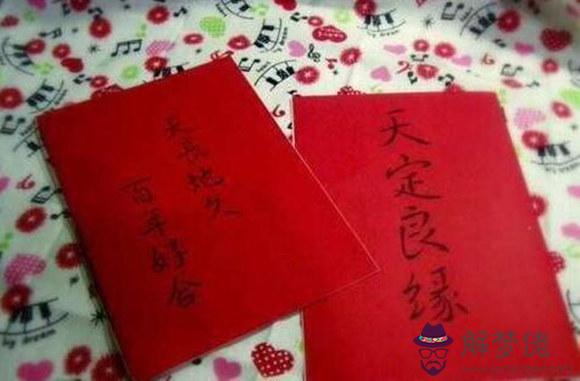 天長地久
百年好合
天定良缘
解梦佬